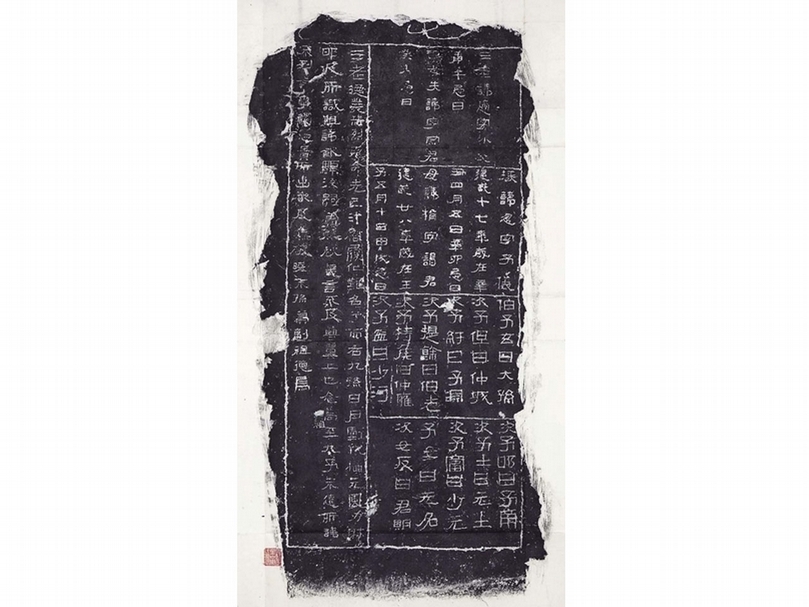 三老諱通字小父
庚午忌日
祖母失諱字宗君
癸未忌日
掾諱忽字子儀
建武十七年歲在辛
丑四月五日辛卯忌日
母諱捐字謁君
建武廿八年歲在壬
子五月十日甲戌忌日
伯子玄曰大孫
次子但曰仲城
次子紆曰子淵
次子提餘曰伯老
次子持侯曰仲雍
次子盈曰少河
次子邯曰子南
次子士曰元士
次子富曰少元
子女曰无名
次女反曰君明
三老德業赫烈克命先己汁稽履化難名兮而右九孫日月虧代猶元風力射
邯及所識祖諱欽顯後嗣蓋春秋義言不及尊翼上也念高祖至九子未遠所諱
不列言事觸忌貴所出嚴及焦敬曉末孫冀副祖德焉